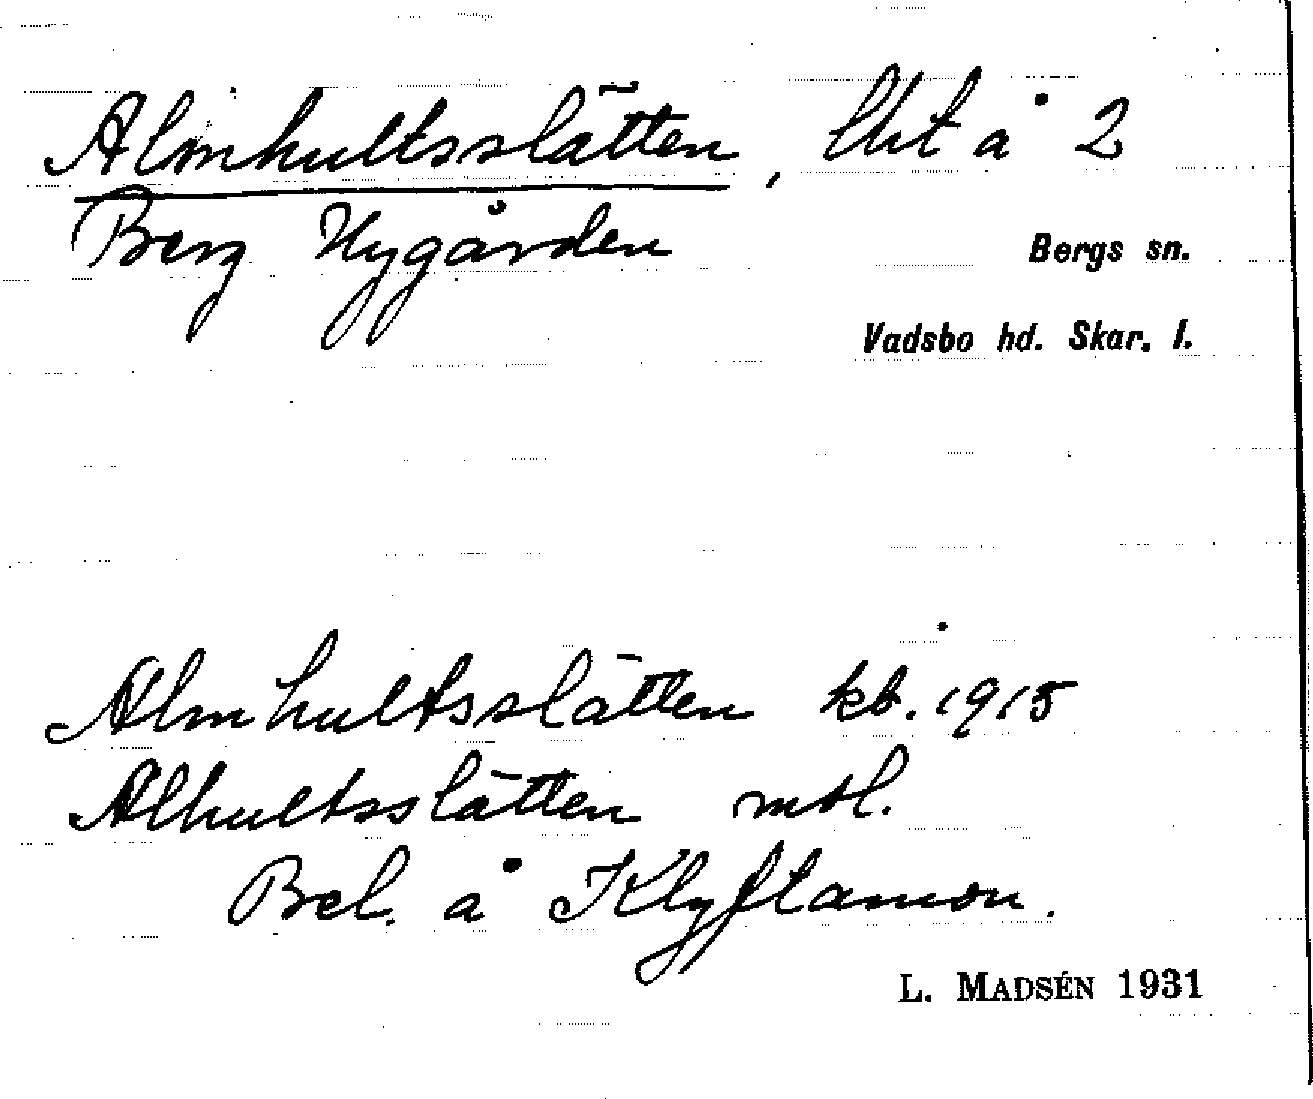 Almhultsslätten, Utt å 2
Berg Nygården
Bergs sn.
Vadsbo hd. Skar. l.
Almhultsslätten kb. 1915
Alhultsslätten mtl.
Bel. å Klyftamon.
L. MADSÉN 1931